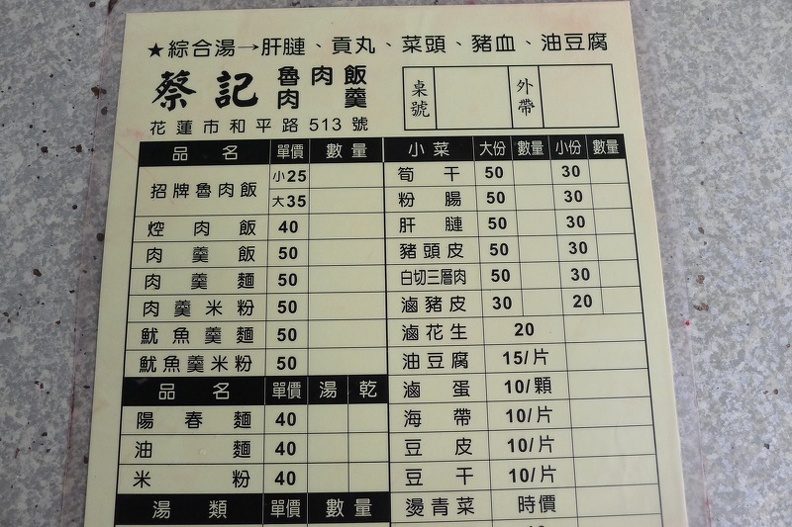 ★綜合湯→肝膢、貢丸、菜頭、豬血、油豆腐
蔡記 魯肉飯
肉羹
桌號 外帶
花蓮市和平路513號
品名 單價 數量
招牌魯肉飯 小25
大35
焢肉飯 40
肉羹飯 50
肉羹麵 50
肉羹米粉 50
魷魚羹麵 50
魷魚羹米粉 50
品名 單價 湯 乾
陽春麵 40
油麵 40
米粉 40
湯類 單價 數量
小菜 大份 數量 小份 數量
筍干 50 30
粉腸 50 30
肝膢 50 30
豬頭皮 50 30
白切三層肉 50 30
滷豬皮 30 20
滷花生 20
油豆腐 15/片
滷蛋 10/顆
海帶 10/片
豆皮 10/片
豆干 10/片
燙青菜 時價